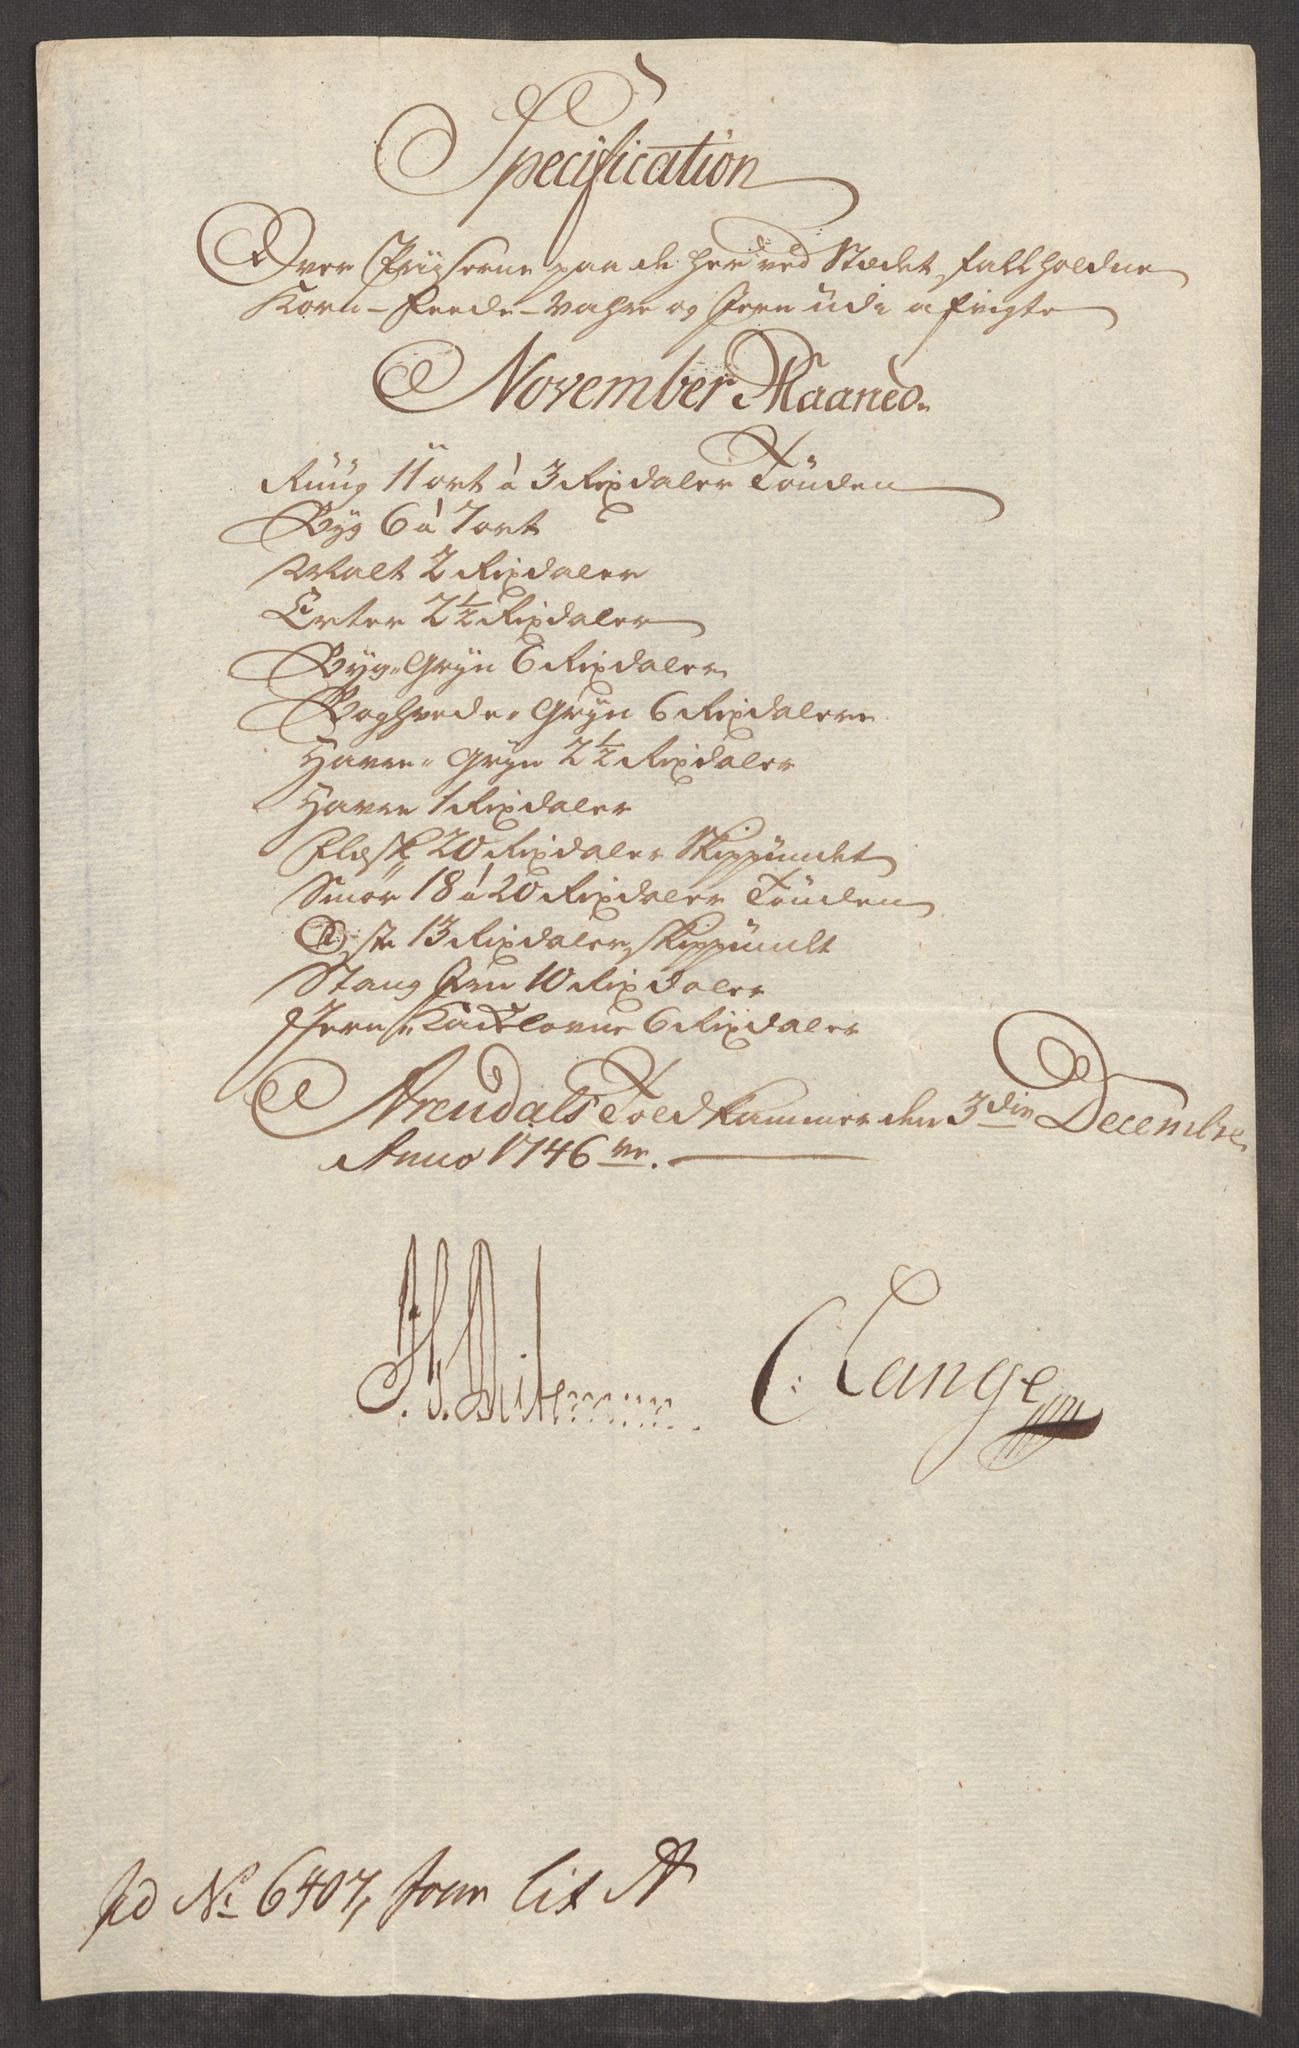 Specification
Over Priiserne paa de her ved Stædet fallholdne
Korn- Feede- Vahre og Jern üdi afvigte
November Maaned.
Rüüg 11 ort à 3 Rixdaler Tönden
Byg 6 à 7 ort
Malt 2 Rixdaler
Erter 2 1/2 Rixdaler
Byg-Gryn 6 Rixdaler
Boghvede-Gryn 6 Rixdaler
Havre-Gryn 2 1/2 Rixdaler
Havre 1 Rixdaler
Flæsk 20 Rixdaler Skippündet
Smör 18 à 20 Rixdaler Tönden
Oste 13 Rixdaler Skippündt
Stang Jern 10 Rixdaler
Jern-Kackelovne 6 Rixdaler
Arendals Toldkammer den 3die Decembre
Anno 1746
C: Lange
No 6407, Lit A